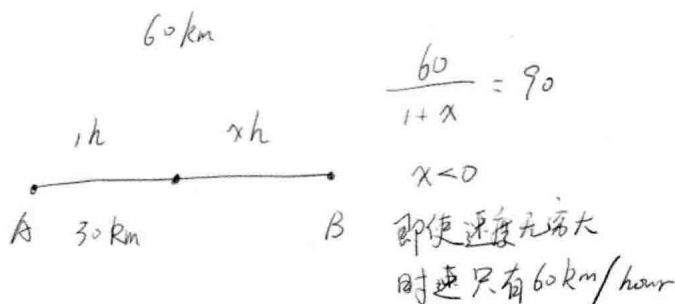 60km
1h xh
A 30km B
60
1+x = 90
x<0
即使速度无穷大
时速只有60km/hour